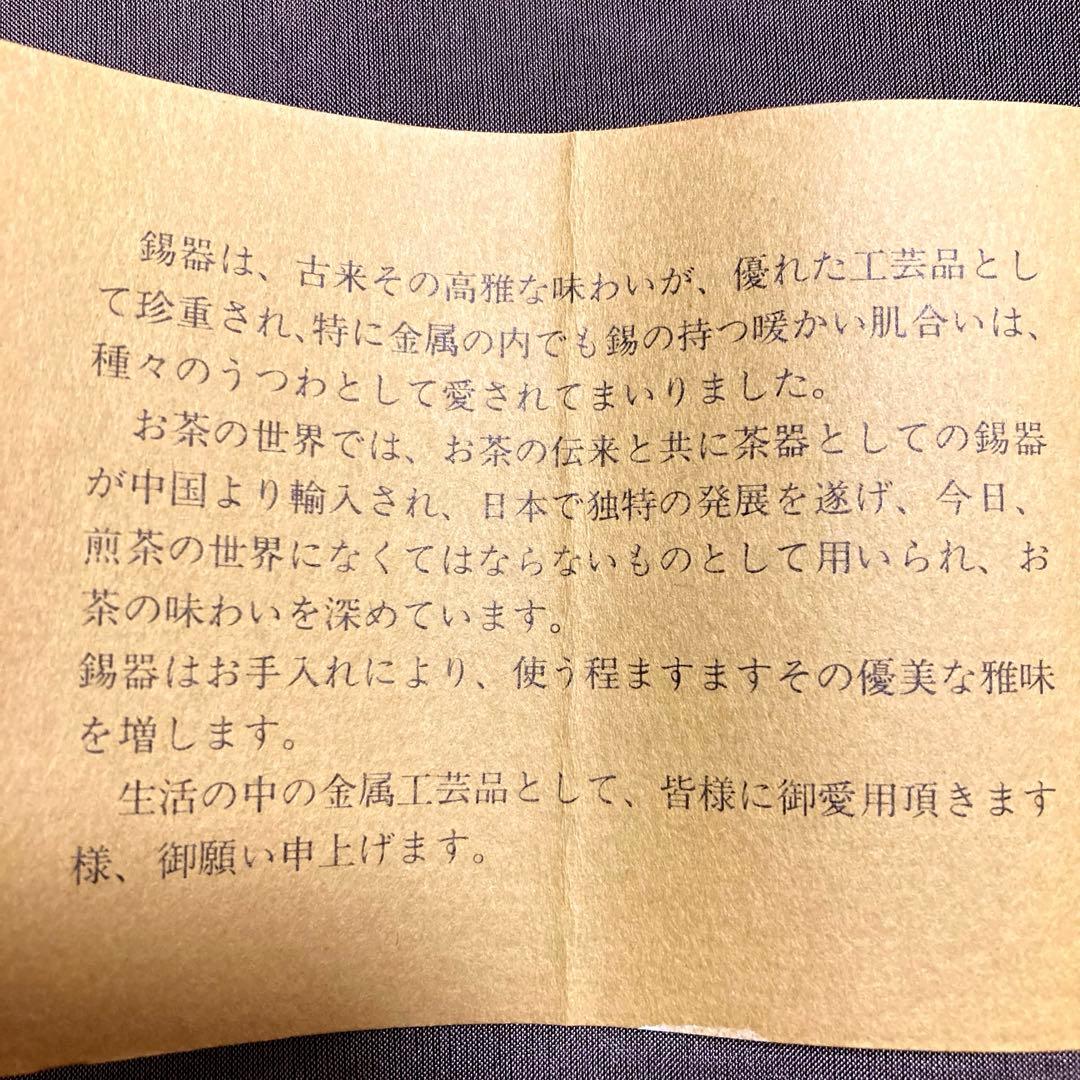 錫器は、古来その高雅な味わいが、優れた工芸品とし
て珍重され、特に金属の内でも錫の持つ暖かい肌合いは、
種々のうつわとして愛されてまいりました。
お茶の世界では、お茶の伝来と共に茶器としての錫器
が中国より輸入され、日本で独特の発展を遂げ、今日、
煎茶の世界になくてはならないものとして用いられ、お
茶の味わいを深めています。
錫器はお手入れにより、使う程ますますその優美な雅味
を増します。
生活の中の金属工芸品として、皆様に御愛用頂きます
様、御願い申上げます。